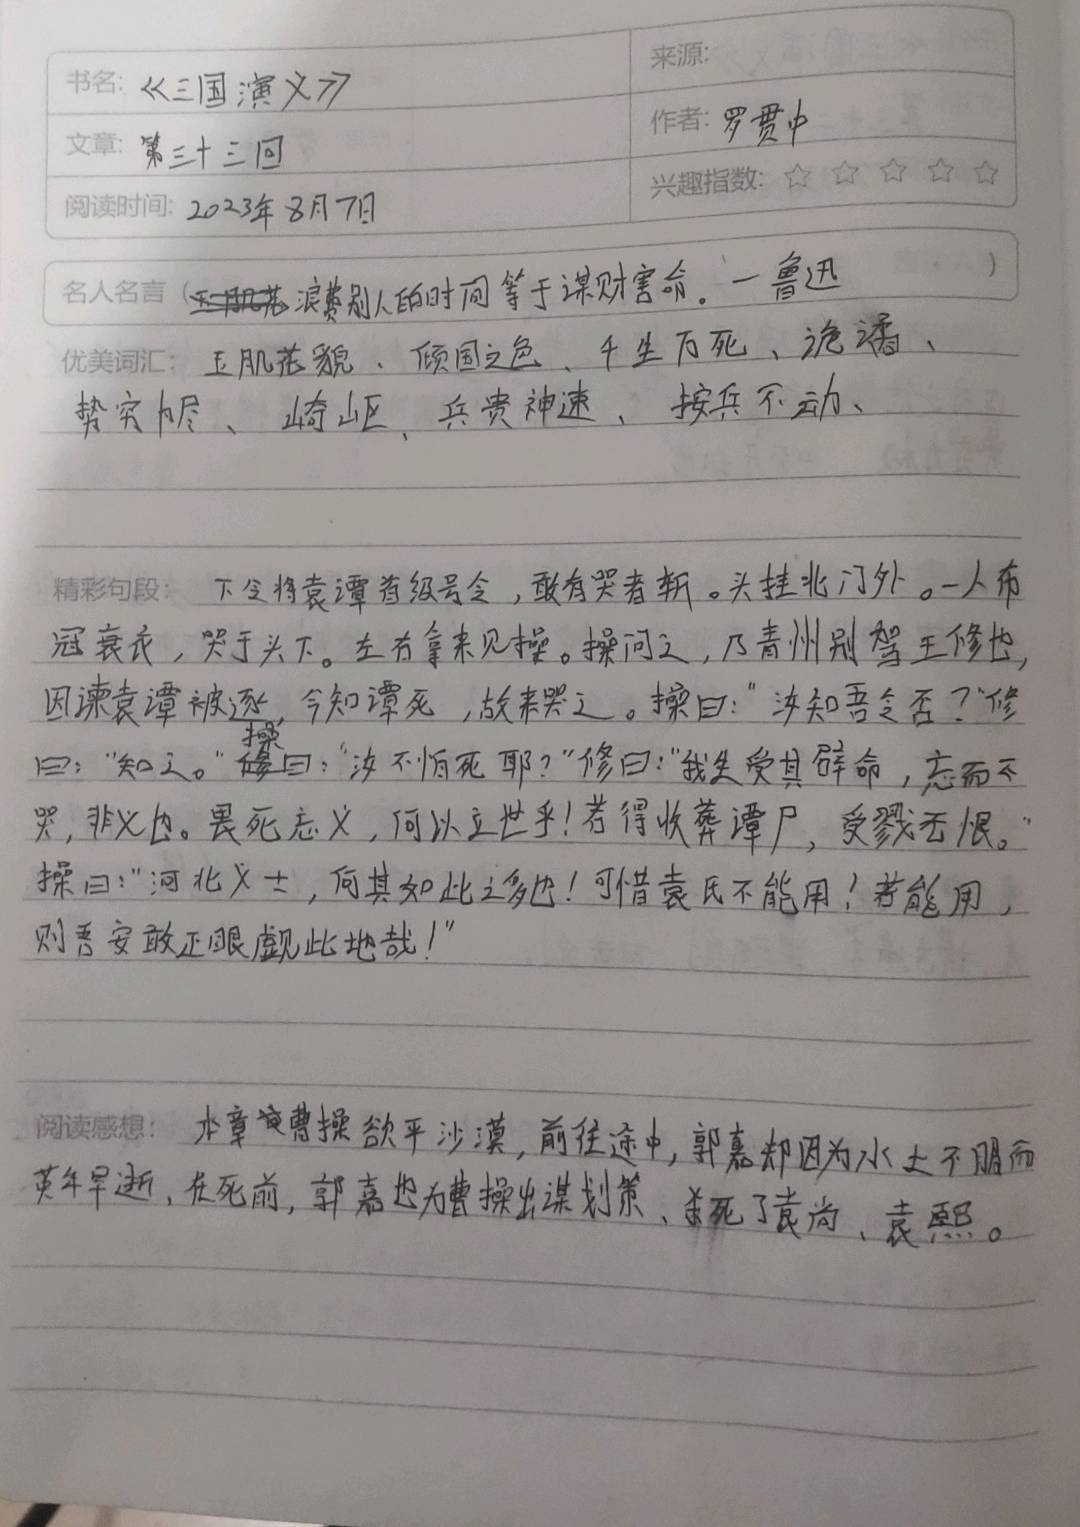 书名: 《三国演义》
来源:
文章: 第三十三回
作者: 罗贯中
阅读时间: 2023年8月7日
兴趣指数: ☆ ☆ ☆ ☆ ☆
名人名言（浪费别人的时间等于谋财害命。一鲁迅）
优美词汇: 玉肌花貌、倾国之色、千生万死、诡谲、
势穷力尽、崎岖、兵贵神速、按兵不动、
精彩句段: 下令将袁谭首级号令，敢有哭者斩。头挂北门外。一人布
冠衰衣，哭于头下。左右拿来见操。操问之，乃青州别驾王修也，
因谏袁谭被逐，今知谭死，故来哭之。操曰："汝知吾令否？"修
曰："知之。"操曰："汝不怕死耶？"修曰："我生受其辟命，亡而不
哭，非义也。畏死忘义，何以立世乎！若得收葬谭尸，受戮无恨。"
操曰："河北义士，何其如此之多也！可惜袁氏不能用！若能用，
则吾安敢正眼觑此地哉！"
阅读感想: 本章曹操欲平沙漠，前往途中，郭嘉却因为水土不服而
英年早逝，在死前，郭嘉也为曹操出谋划策、杀死了袁尚、袁熙。